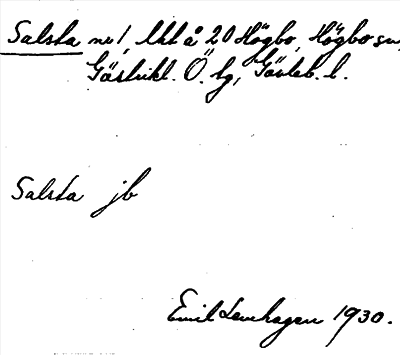 Salsta nr 1, Utt å 20 Högbo, Högbo sn,
Gästrikl. Ö. tg, Gävleb. l.
Salsta jb
Emil Levehagen 1930.